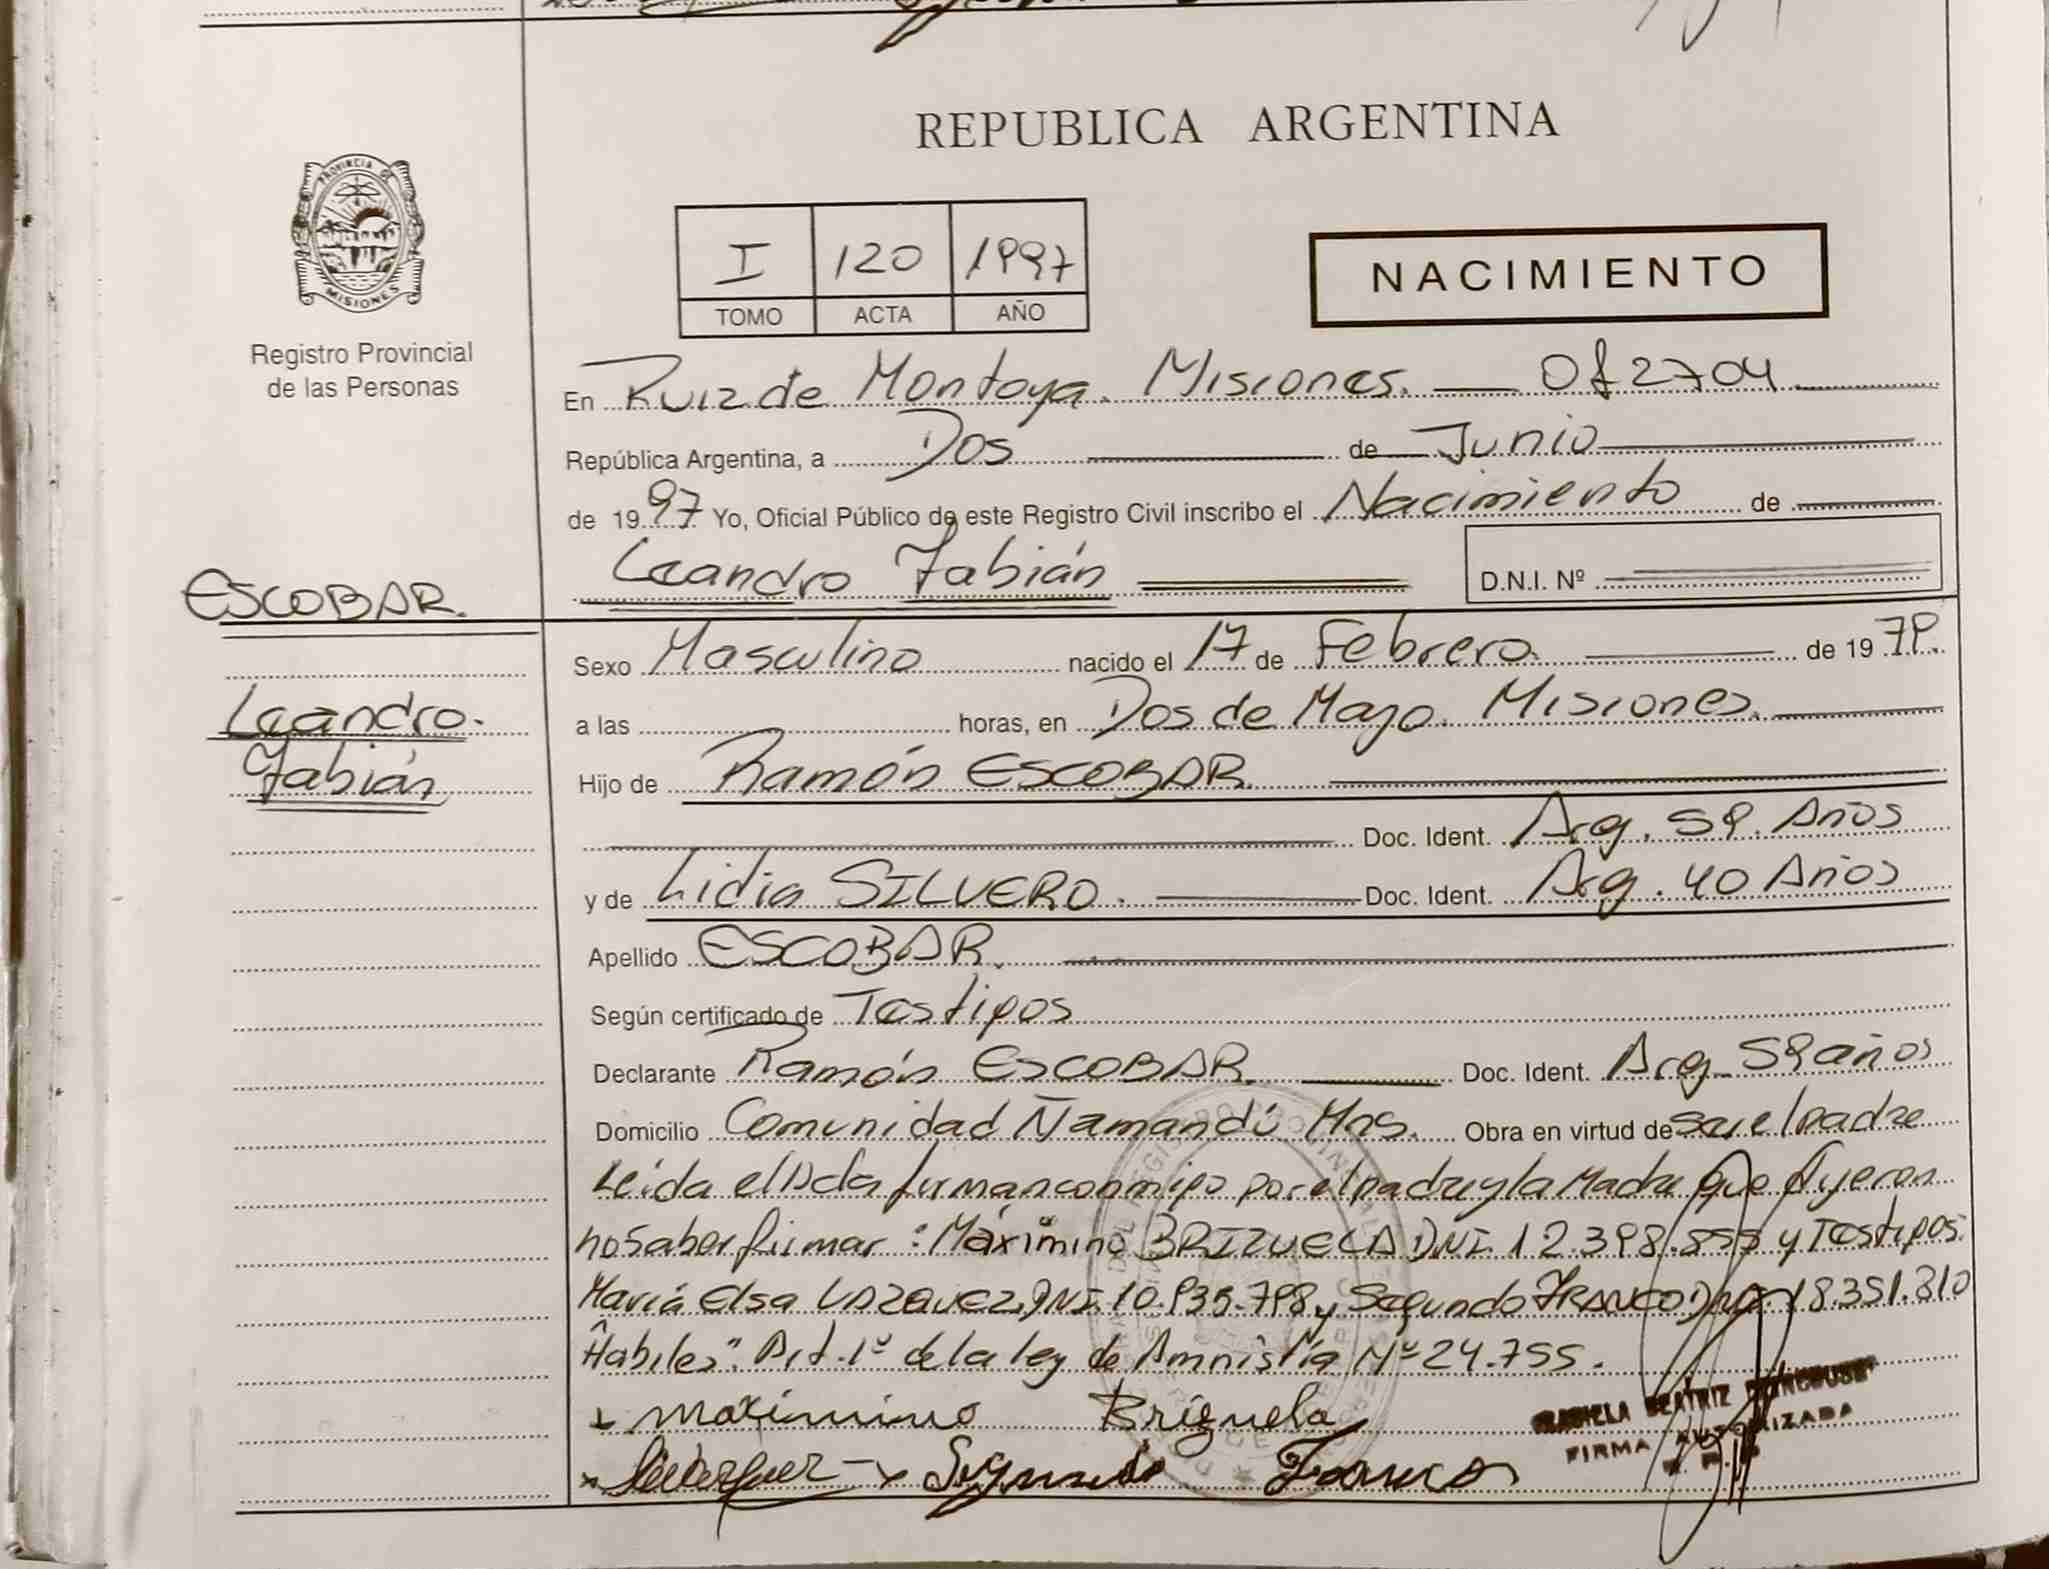 REPUBLICA ARGENTINA
PROVINCIA DE
MISIONES
Registro Provincial
de las Personas
I 120 1997
TOMO ACTA AÑO
NACIMIENTO
En Ruiz de Montoya. Misiones. Of 2704
República Argentina, a Dos de Junio
de 1997 Yo, Oficial Público de este Registro Civil inscribo el Nacimiento de
Leandro Fabián D.N.I. Nº
ESCOBAR.
Leandro.
Fabián
Sexo Masculino nacido el 17 de Febrero. de 1979.
a las horas, en Dos de Mayo. Misiones.
Hijo de Ramón ESCOBAR.
Doc. Ident. Arg. 59. Años
y de Lidia SILVERO. Doc. Ident. Arg. 40 Años
Apellido ESCOBAR.
Según certificado de Testigos
Declarante Ramón ESCOBAR. Doc. Ident. Arg. 59 años
Domicilio Comunidad Ñamandú Mns. Obra en virtud de ser el padre
Leída el Acta firman conmigo por el padre y la Madre que dijeron
no Saber firmar: Máximino BRIZUELA DNI. 12.398.857 y Testigos.
María Elsa VAZQUEZ DNI 10.935.798 y Segundo FRANCO DNI. 18.351.810
Habiles". Art. 1º de la ley de Amnistía Nº 24.755.
maximino Brizuela
Segundo Franco
BEATRIZ
FIRMA AUTORIZADA